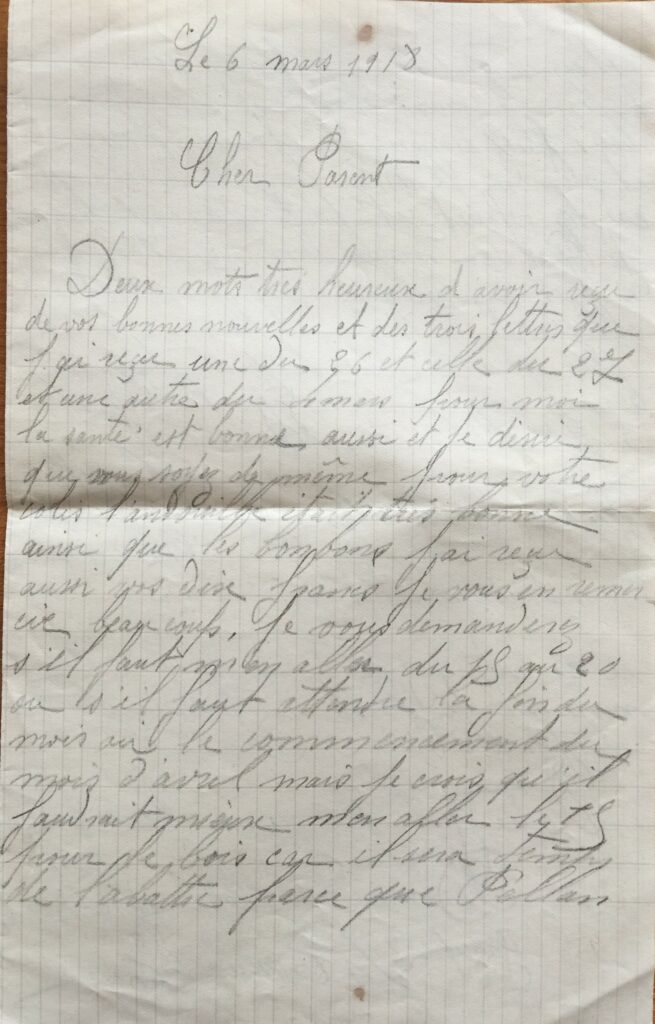 Le 6 mars 1918
Cher Parent
Deux mots très heureux d'avoir reçu
de vos bonnes nouvelles et des trois lettres que
j'ai reçue une du 26 et celle du 28
et une autre du 4 mars pour moi
la santé est bonne aussi et je désire
que vous soyez de même pour votre
colis l'andouille était très bonne
ainsi que les bonbons j'ai reçue
aussi vos dix francs je vous en remer
cie beaucoup. Je vous demanderez
s'il faut m'en aller du 15 au 20
ou s'il faut attendre la fin du
mois ou le commencement du
mois d'avril mais je crois qu'il
faudrait mieux m'en aller le 15
pour le bois car il sera temps
de l'abattre parce que